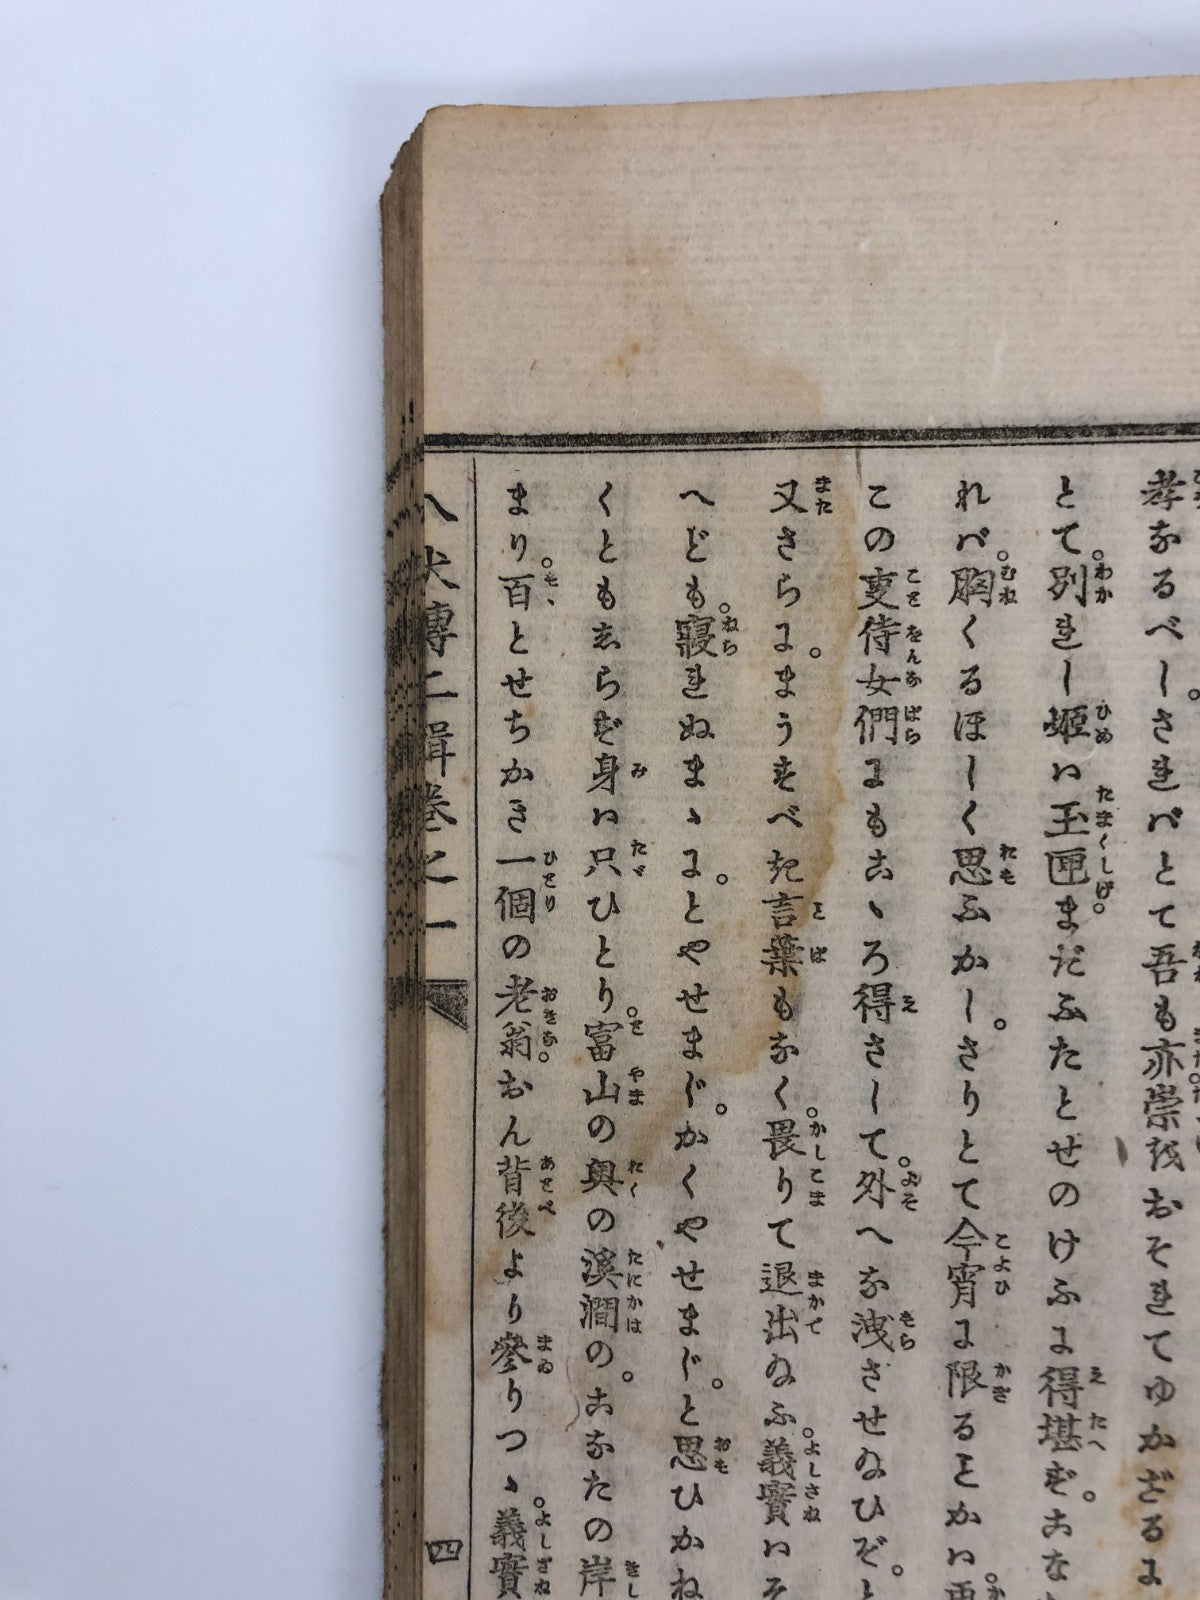 孝なるべしさればとて吾も亦祟をおそれてゆかざるに
とて。別れし姫は玉匣。まだふたとせのけふに得堪ず。こな
れば。胸くるほしく思ふかし。さりとて今宵に限ることかは。再
この叓侍女們にもこゝろ得さして。外へな洩させ給ひぞ。と
又さらに。まうすべき言葉もなく。畏りて退出給ふ。義實はそ
へども。寢れぬまゝに。とやせまじ。かくやせまじ。と思ひかね
くともしらず身は只ひとり。富山の奥の溪澗の。こなたの岸
まり。百とせちかき一個の老翁。おん背後より參りつゝ。義實
八犬傳二輯卷之一
四